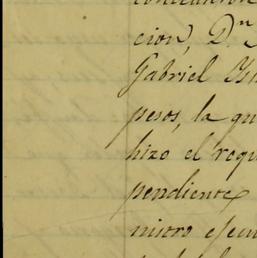 cion, D.n
Gabriel
pesos, la qu
hizo el requ
pendiente,
nistro ejecu